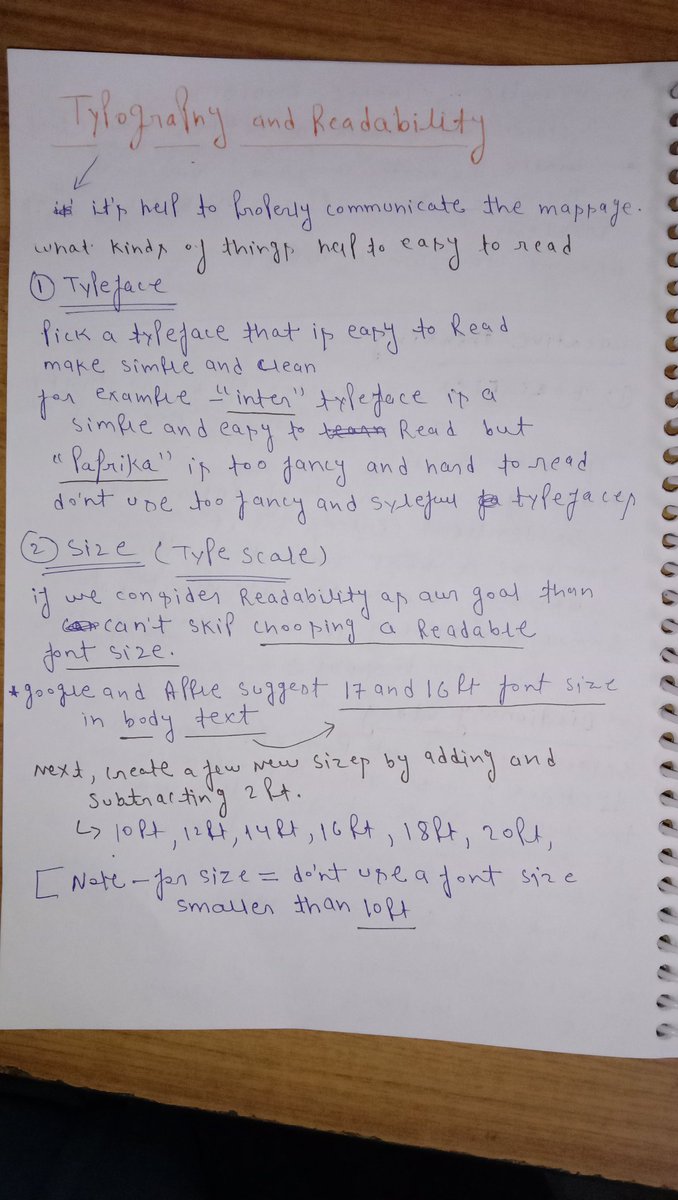 Typography and Readability
it's help to properly communicate the massage.
what kinds of things help to easy to read
① Typeface
Pick a typeface that is easy to Read
make simple and clean
for example - "inter" typeface is a
simple and easy to Read but
"Paprika" is too fancy and hard to read
do'nt use too fancy and sylefull typefaces
② Size (Type scale)
if we consider Readability as our goal than
can't skip choosing a Readable
font size.
* google and Apple suggest 17 and 16 Pt font size
in body text
Next, create a few new sizes by adding and
subtracting 2 Pt.
↳ 10Pt, 12Pt, 14Pt, 16Pt, 18Pt, 20Pt,
[ Note - for size = do'nt use a font size
smaller than 10Pt